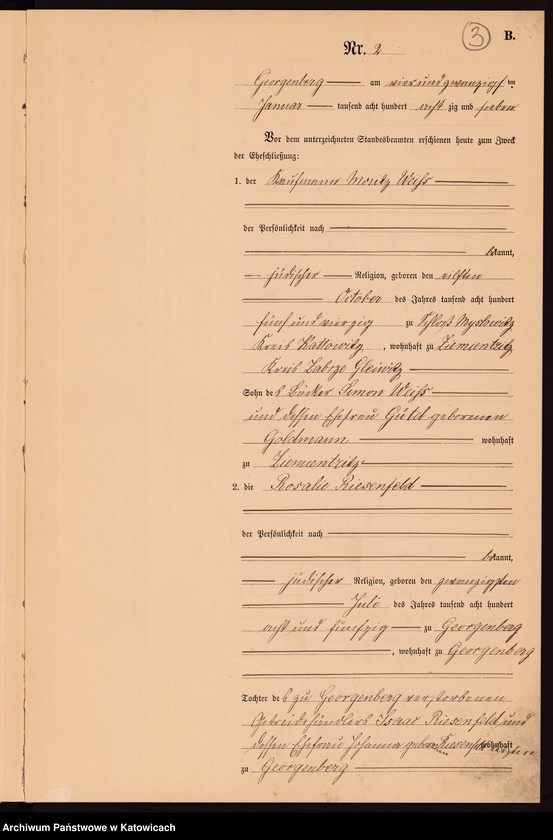 3 B.
Nr. 2
Georgenberg am vier und zwanzigsten
Januar tausend acht hundert acht zig und sieben
Vor dem unterzeichneten Standesbeamten erschienen heute zum Zweck
der Eheschließung:
1. der Kaufmann Moritz Weiss
der Persönlichkeit nach
bekannt,
jüdischer Religion, geboren den elften
October des Jahres tausend acht hundert
fünf und vierzig zu Schloß Myslowitz
Kreis Kattowitz, wohnhaft zu
Kreis Zabrze Gleiwitz
Sohn des Bäcker Simon Weiss
und dessen Ehefrau Gütel geborenen
Goldmann wohnhaft
zu
2. die Rosalie Riesenfeld
der Persönlichkeit nach
bekannt,
jüdischer Religion, geboren den zwanzigsten
Juli des Jahres tausend acht hundert
acht und fünfzig zu Georgenberg
, wohnhaft zu Georgenberg
Tochter des zu Georgenberg verstorbenen
Getreidehändlers Isaac Riesenfeld und
dessen Ehefrau Johanna geborenen wohnhaft
zu Georgenberg
Archiwum Państwowe w Katowicach